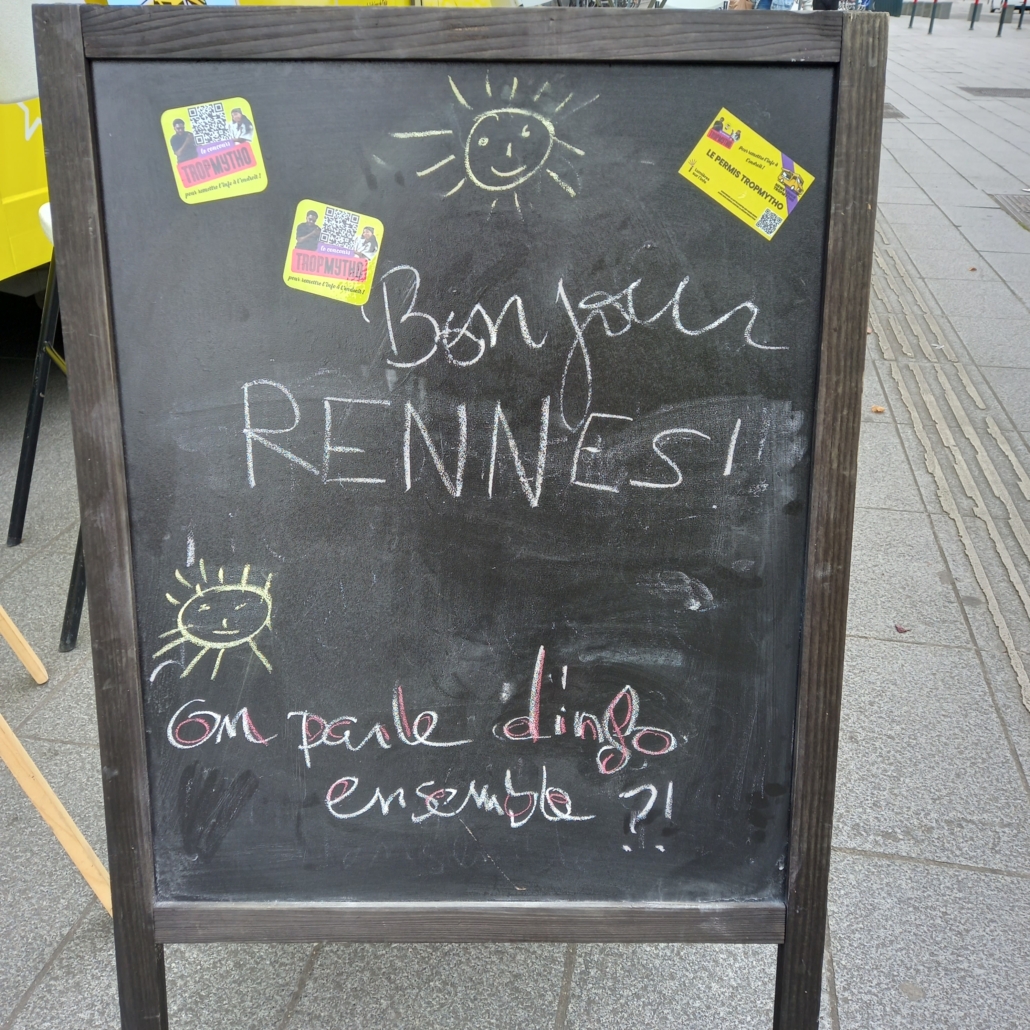 la concours
TROPMYTHO
pour remettre l'info à l'endroit !
LE PERMIS TROPMYTHO
pour remettre l'info à l'endroit !
TROPMYTHO
pour remettre l'info à l'endroit !
Bonjour
RENNES !
on parle d'info
ensemble ?!